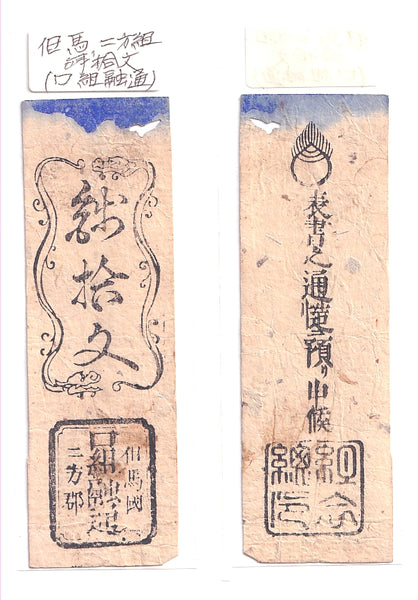 但馬 二方組
銭拾文
(口組融通)
銭拾文
但馬國
口組融通
二方郡
表書之通慥ニ預り申候